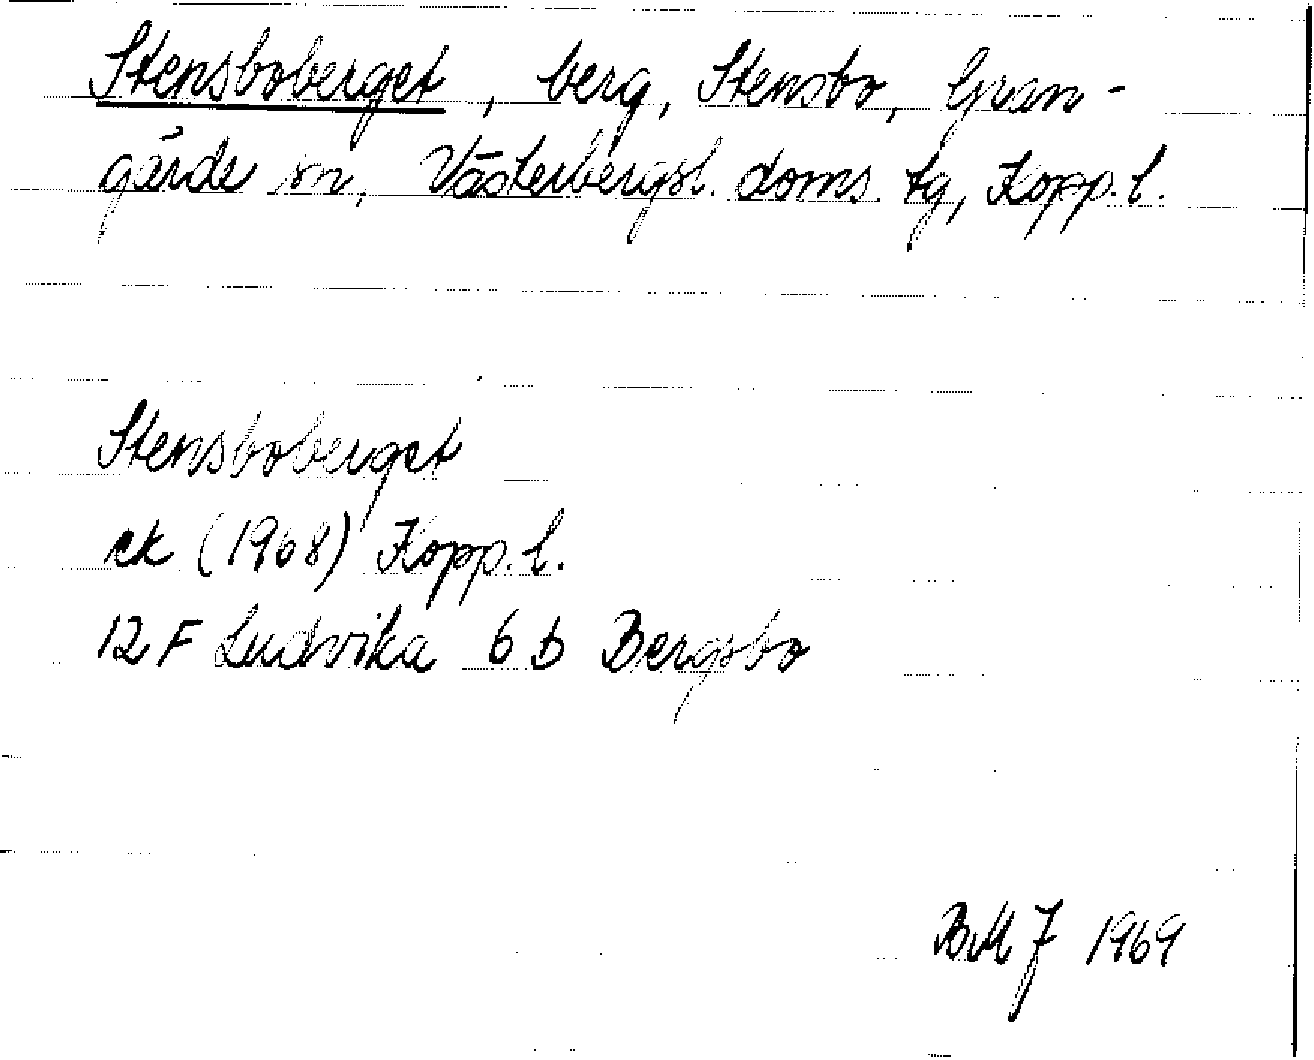 Stensboberget, berg, Stensbo, Gran-
gärde sn, Västerbergsl. doms. tg, Kopp. l.
Stensboberget
ek (1968) Kopp. l.
12 F Ludvika 6 b Bergsbo
BMJ 1969